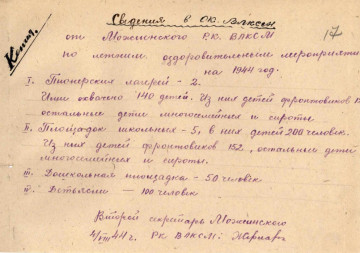 17
Копия
Сведения в ОК. ВЛКСМ
от Можгинского РК. ВЛКСМ
по летним оздоровительным мероприятия
на 1944 год.
I. Пионерских лагерей - 2.
Ими охвачено 140 детей. Из них детей фронтовиков 1
остальные дети многосемейных и сироты
II. Площадок школьных - 5, в них детей 200 человек.
Из них детей фронтовиков 152, остальные детей
многосемейных и сироты.
III. Дошкольная площадка - 50 человек
IV. Детьясли — 100 человек
Второй секретарь Можгинского
4/VIII 44 г. РК ВЛКСМ: